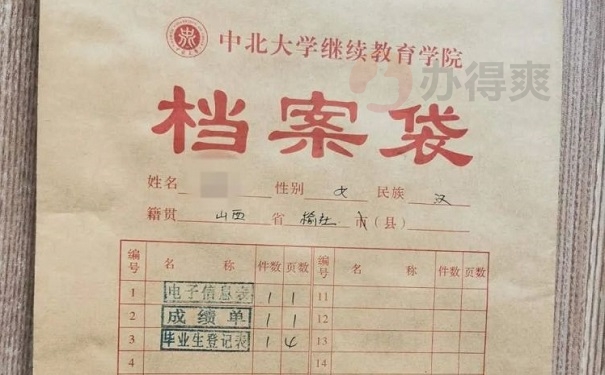 中北大学继续教育学院
办得爽
档案袋
姓名 性别 女 民族 汉
籍贯 山西 省 榆社 市(县)
编号 名 称 件数 页数 编号 名 称 件数 页数
1 电子信息表 1 1 11
2 成绩单 1 1 12
3 毕业生登记表 1 4 13
4 14